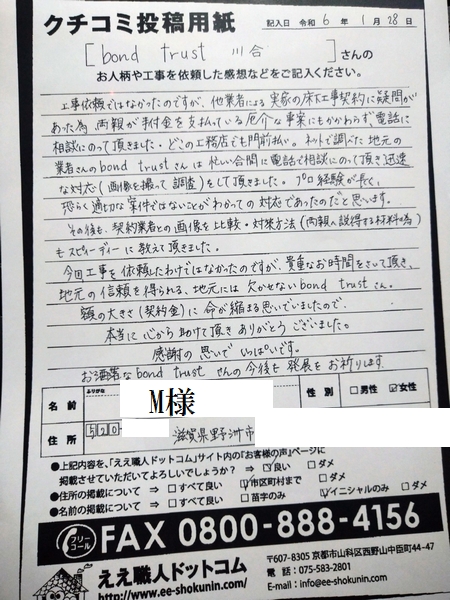 クチコミ投稿用紙
記入日 令和 6 年 1 月 28 日
[ bond trust 川合 ] さんの
お人柄や工事を依頼した感想などをご記入ください。
工事依頼ではなかったのですが、他業者による実家の床下工事契約に疑問が
あった為、両親が手付金を支払っている厄介な事案にもかかわらず電話に
相談にのって頂きました。どこの工務店でも門前払い。ネットで調べた地元の
業者さんのbond trustさんは忙しい合間に電話で相談にのって頂き迅速
な対応(画像を撮って調査)をして頂きました。プロ経験が長く、
恐らく適切な案件ではないことがわかっての対応であったのだと思います。
その後も、契約業者との画像を比較・対策方法(両親へ説得する材料の為)
もスピーディーに教えて頂きました。
今回工事を依頼したわけではなかったのですが、貴重なお時間をさいて頂き、
地元の信頼を得られる、地元には欠かせないbond trustさん。
額の大きさ(契約金)に命が縮まる思いでいましたので、
本当に心から助けて頂きありがとうございました。
感謝の思いでいっぱいです。
お洒落なbond trustさんの今後も発展をお祈りします
ふりがな
名前 M様 性別 □男性 ☑女性
住所 520- 滋賀県野洲市
●上記内容を、「ええ職人ドットコム」サイト内の『お客様の声』ページに
掲載させていただいてよろしいでしょうか? ⇒ ☑良い □ダメ
●住所の掲載について ⇒ □すべて良い ☑市区町村まで □ダメ
●名前の掲載について ⇒ □すべて良い □苗字のみ ☑イニシャルのみ □ダメ
フリーコール FAX 0800-888-4156
ええ職人ドットコム
http://www.ee-shokunin.com/
〒607-8305 京都市山科区西野山中臣町44-47
電話:075-583-2801
E-mail:info@ee-shokunin.com